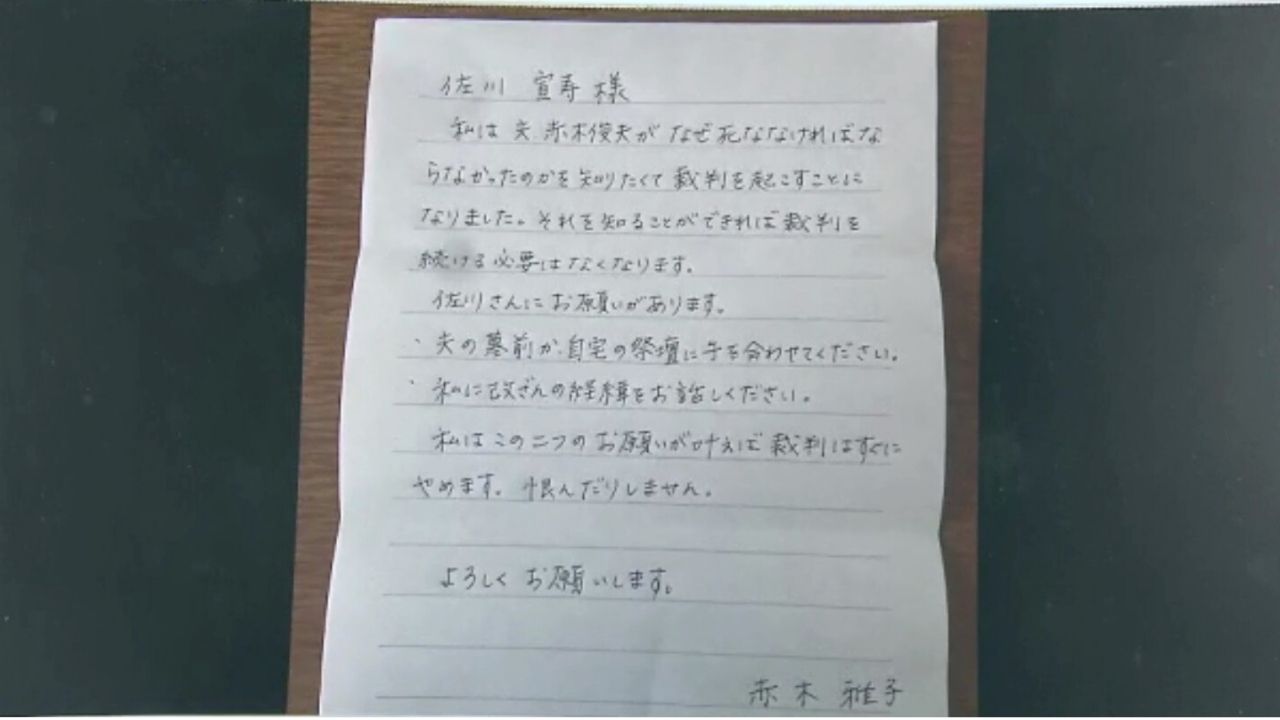 佐川 宣寿 様
私は夫、赤木俊夫が なぜ死ななければな
らなかったのかを知りたくて裁判を起こすことに
なりました。それを知ることができれば裁判を
続ける必要はなくなります。
佐川さんにお願いがあります。
・夫の墓前か、自宅の祭壇に手を合わせてください。
・私に改ざんの経緯をお話しください。
私はこの二つのお願いが叶えば裁判はすぐに
やめます。恨んだりしません。
よろしく お願いします。
赤木 雅子